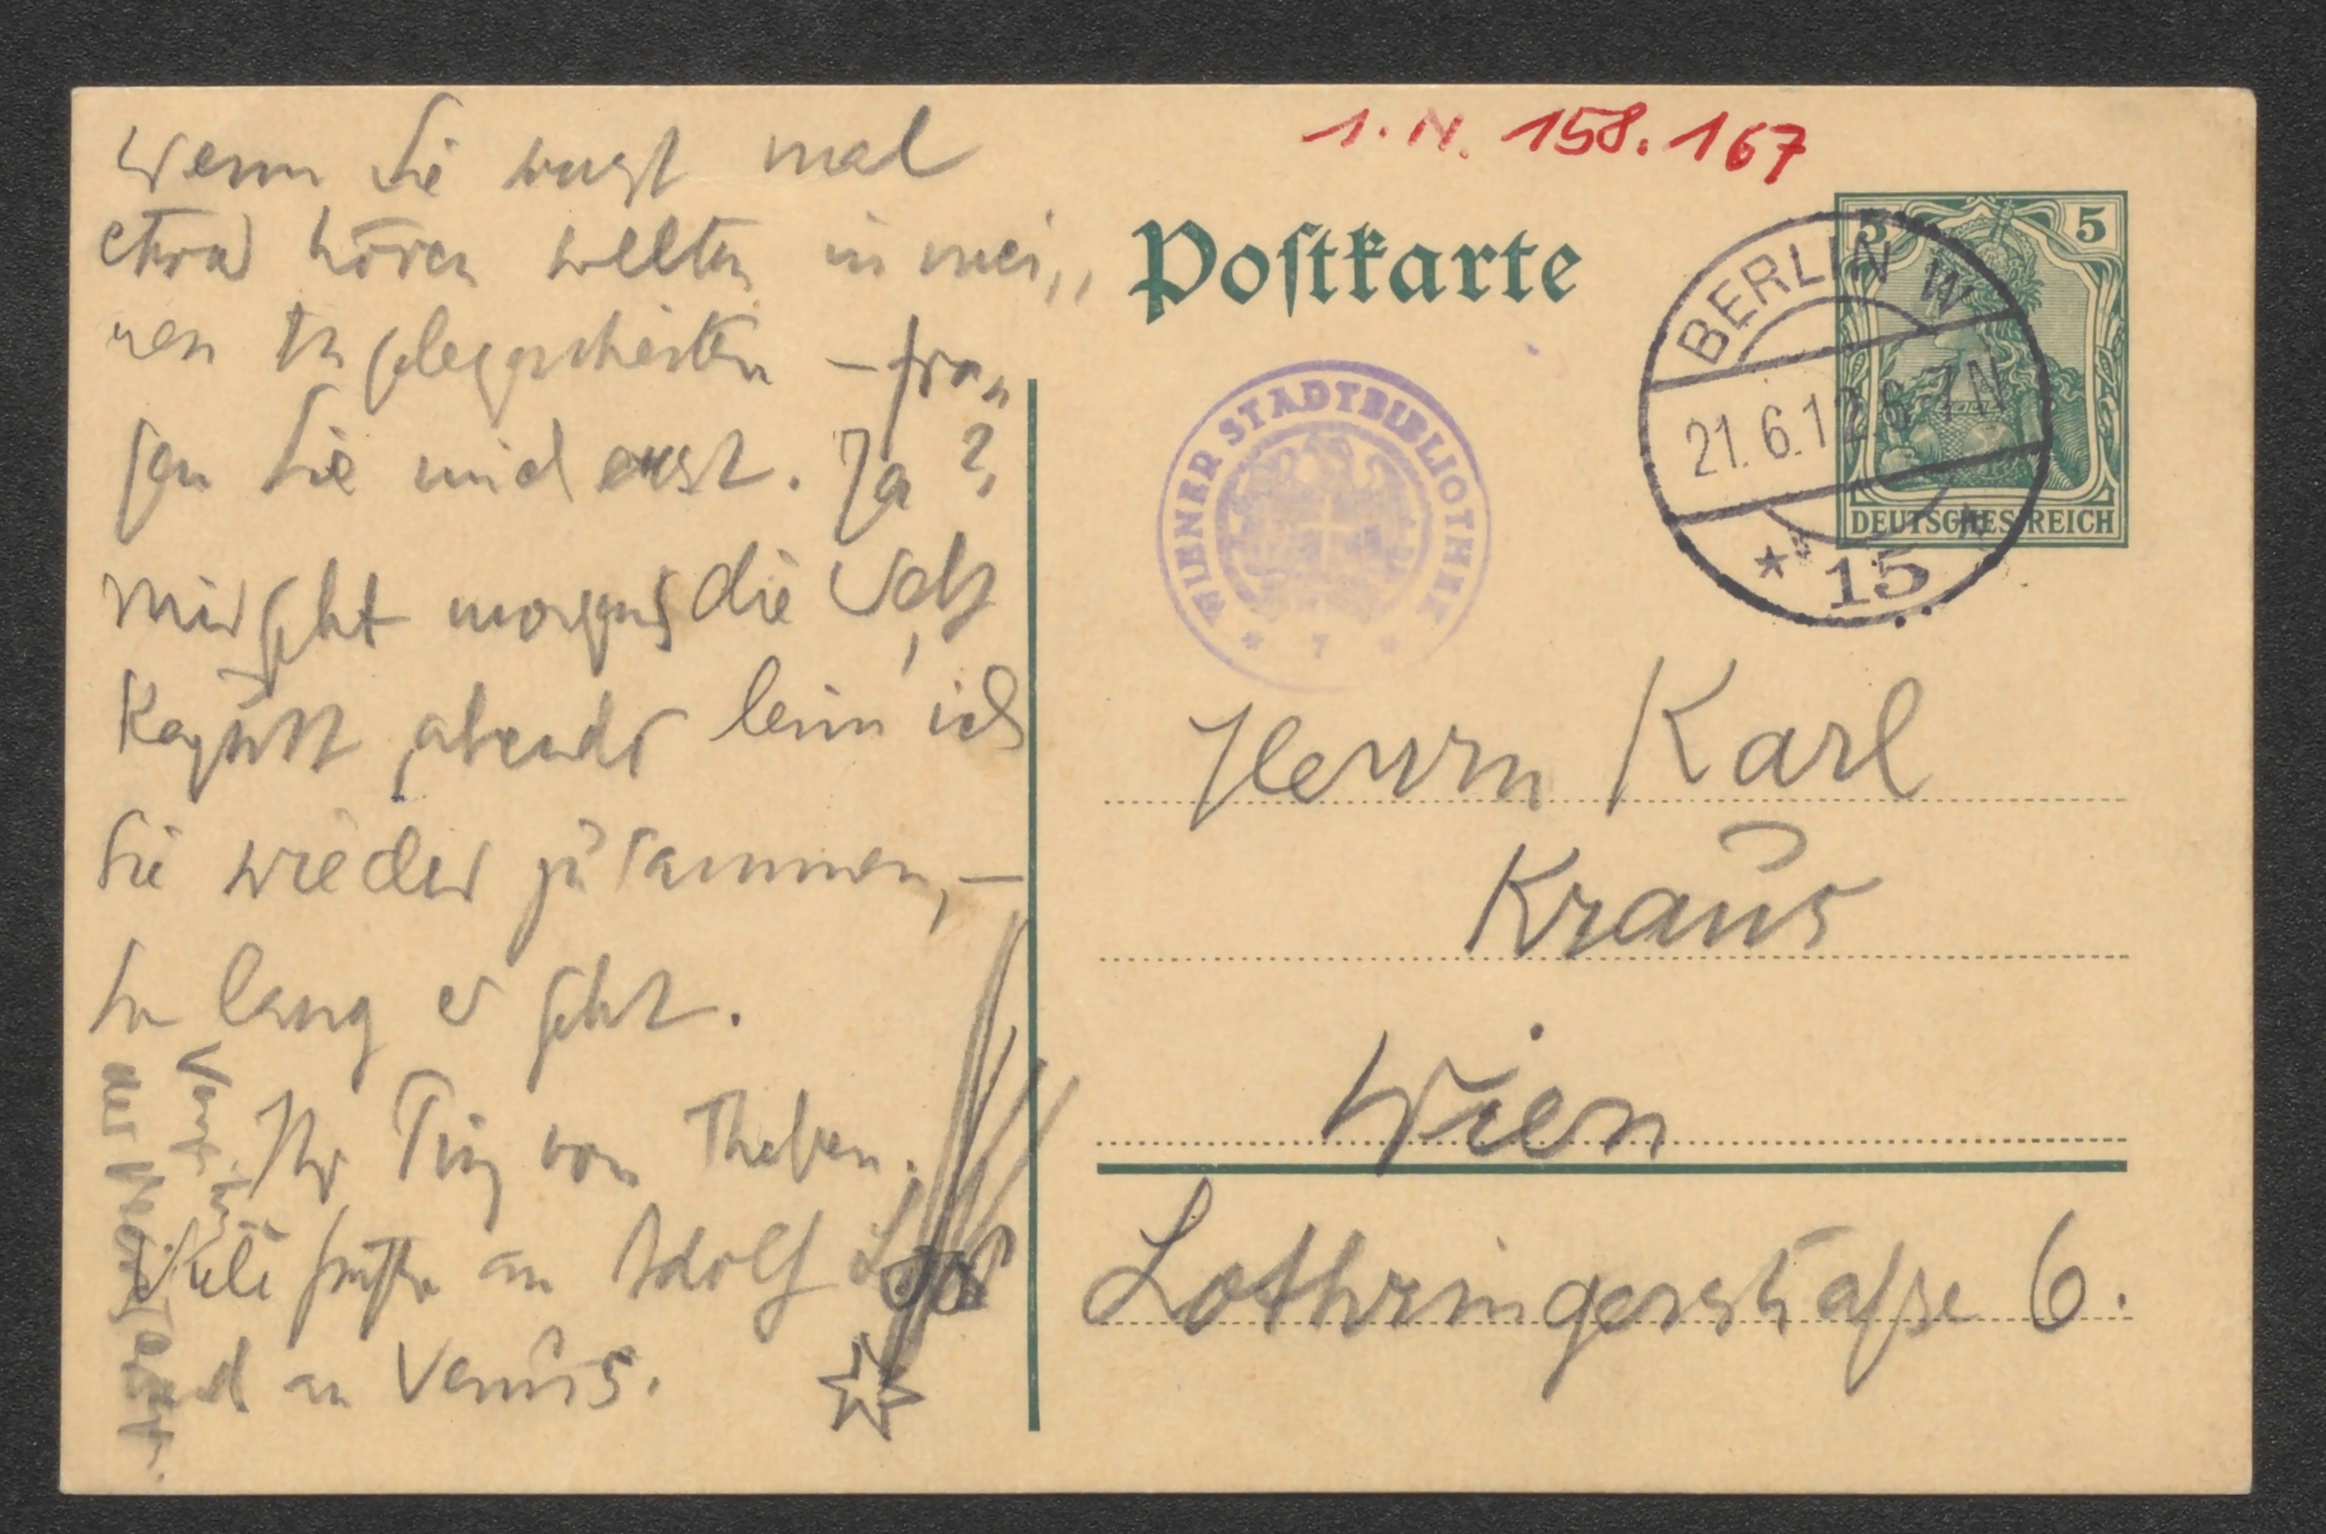 wenn Sie sonst mal
etwas hören sollten in mei„
nen Angelegenheiten – fra„
gen Sie mich erst. Ja?
Mir geht morgens die Welt
kaputt, abends leim ich
Sie wieder zusammen, –
so lang es geht.
Ihr Prinz von Theben.
Viele Grüße an Adolf Loos
und an Venus.
1. N. 158.167
Postkarte
5 5
DEUTSCHES REICH
BERLIN W
21.6.12. 6-7 N
* 15.
WIENER STADTBIBLIOTHEK
* 7 *
Herrn Karl
Kraus
Wien
Lothringerstraße 6.